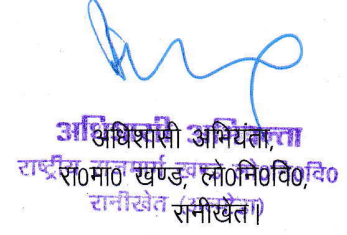 अधिशासी अभियंता,
रा०मा० खण्ड, लो०नि०वि०,
रानीखेत।
अधिशासी अभियन्ता
राष्ट्रीय राजमार्ग खण्ड लो०नि०वि०
रानीखेत (अल्मोड़ा)